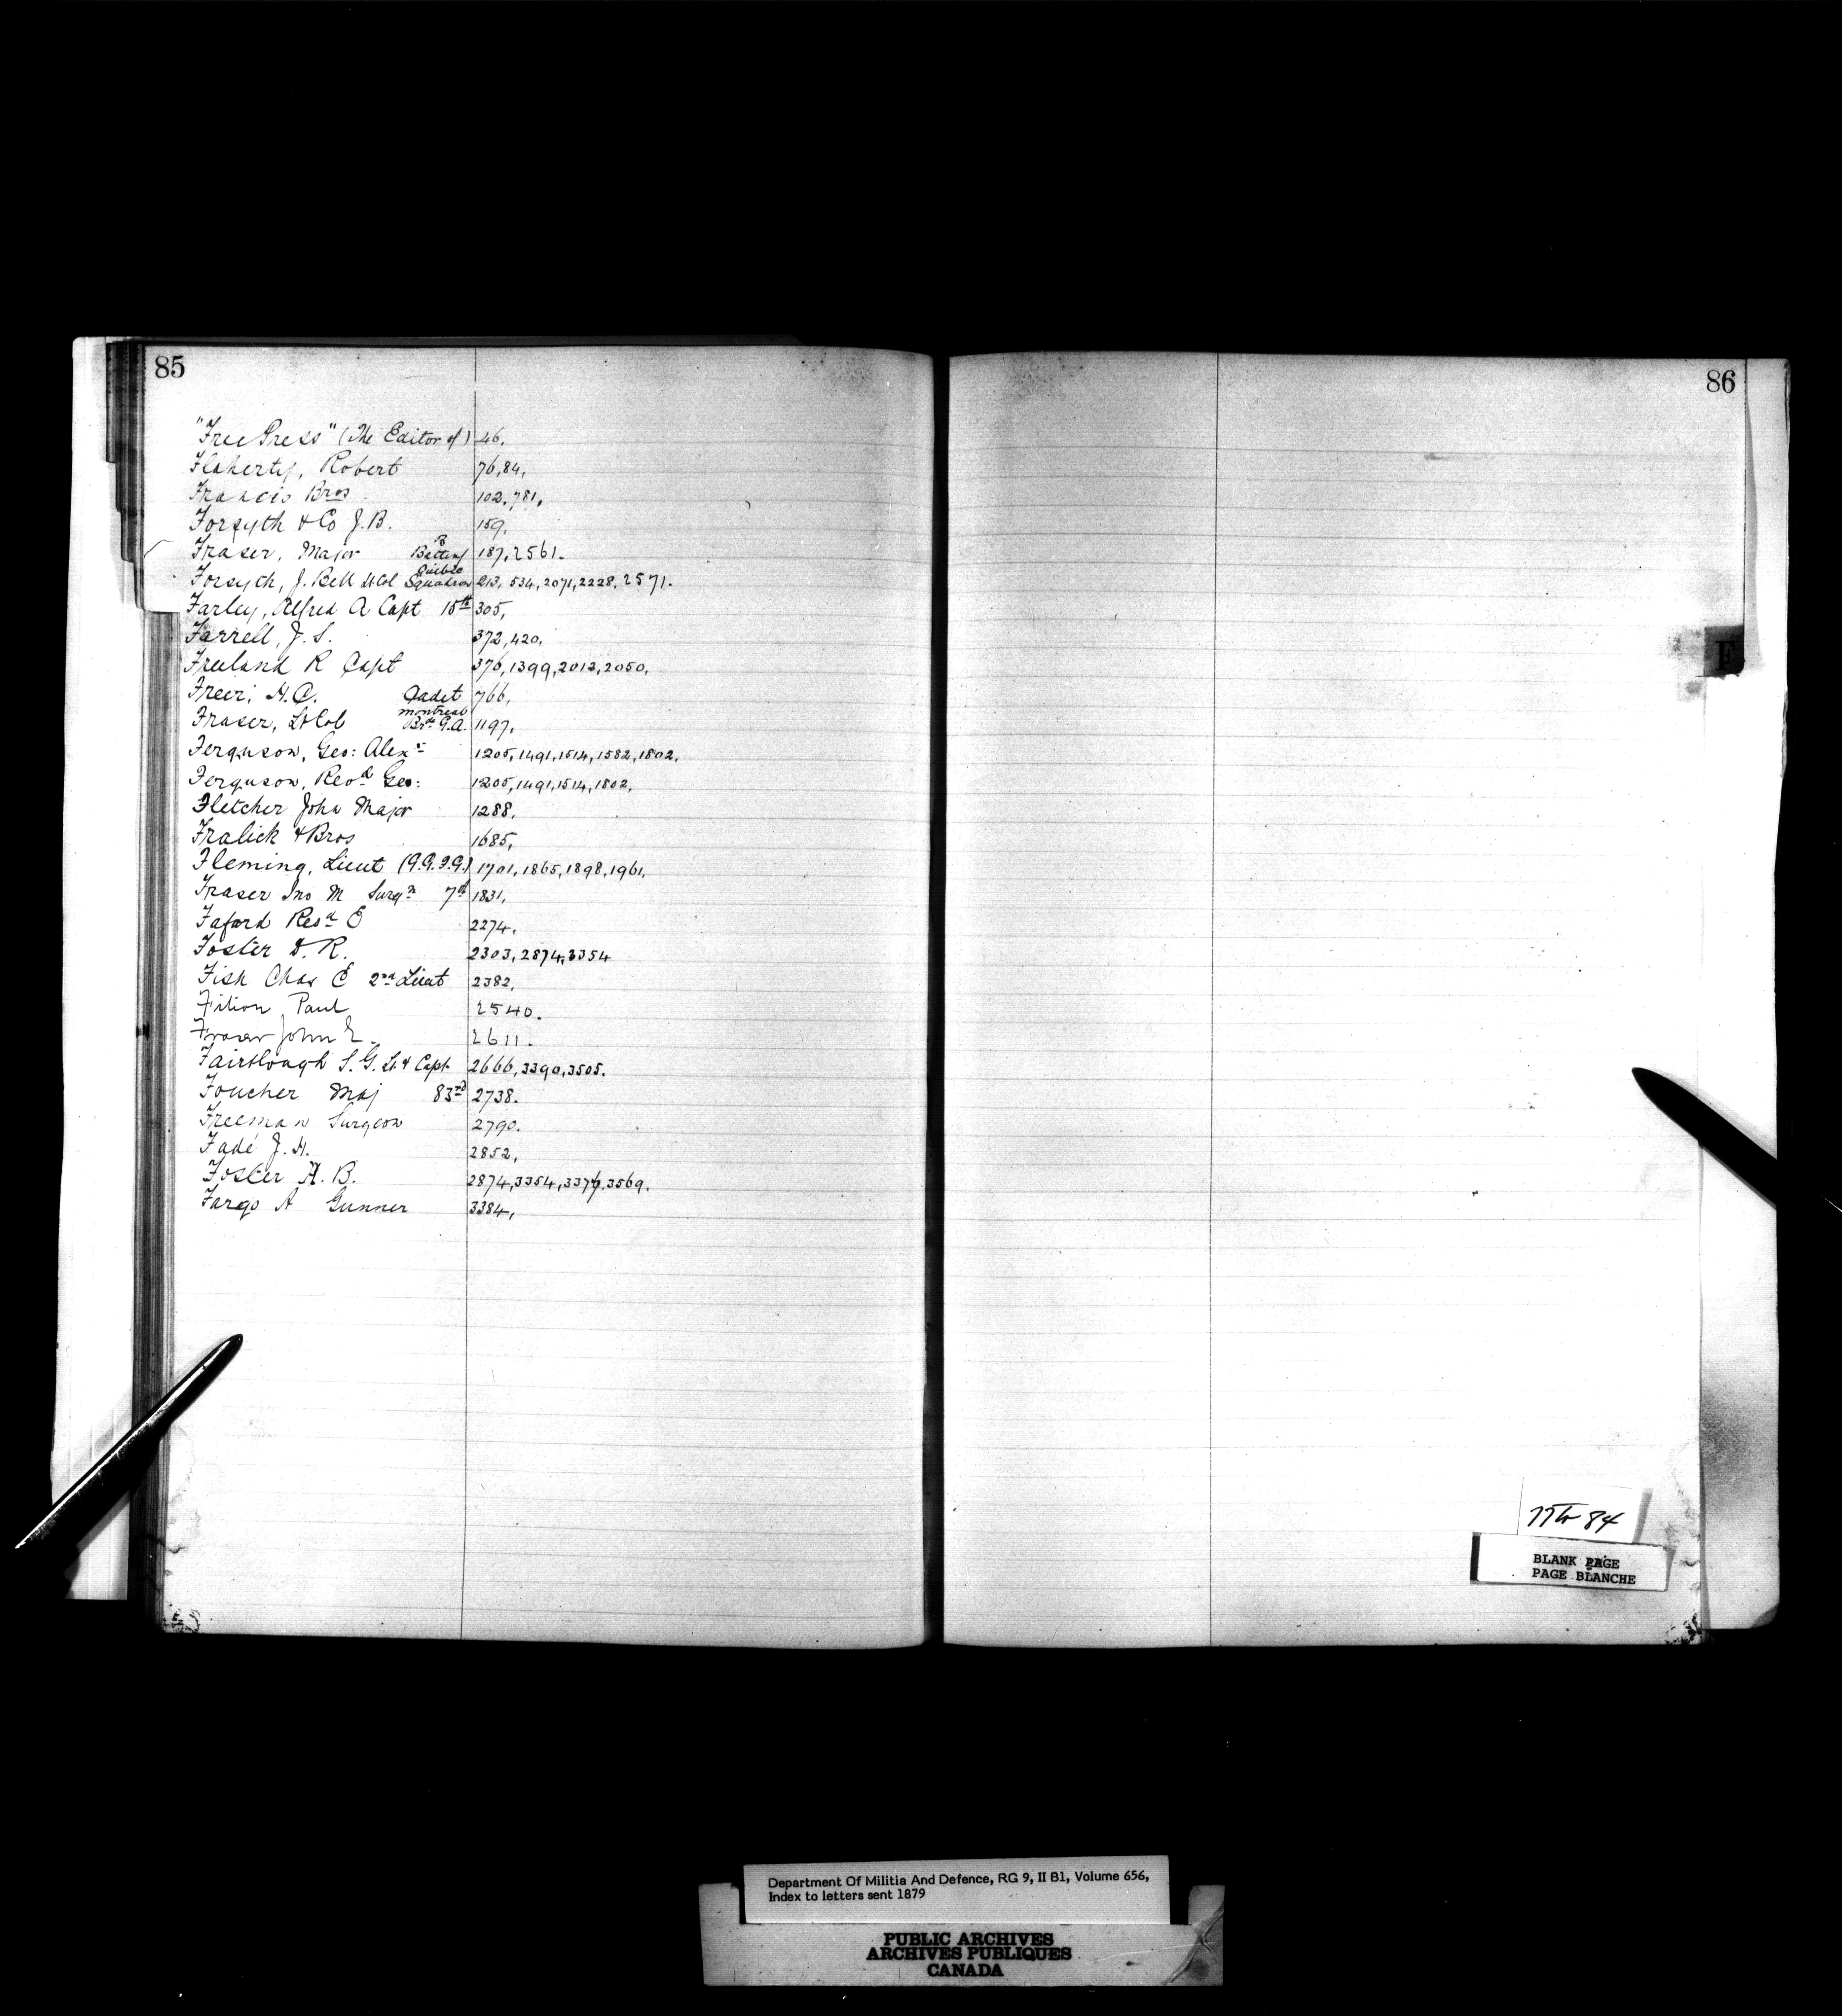 85
"Free Press" (The Editor of) 46.
Flaherty, Robert 76,84,
Francis Bros 102,781,
Forsyth & Co J.B. 159,
Fraser, Major B Battery 187,2561.
Forsyth, J. Bell Lt Col Quebec Squadron 213, 534,2071,2228,2571.
Farley, Alfred A Capt 15th 305,
Farrell, J. S. 372,420.
Freeland R Capt 376,1399,2012,2050,
Freer, H.C. Cadet 766,
Fraser, Lt Col Montreal Brde G.A. 1197,
Ferguson, Geo: Alexr 1205,1491,1514,1582,1802,
Ferguson, Revd Geo: 1205,1491,1514,1802,
Fletcher John Major 1288.
Fralick & Bros 1685,
Fleming, Lieut (G.G.F.G.) 1701,1865,1898,1961,
Fraser Jno M Surgn 7th 1831,
Faford Revd E 2274,
Foster D. R. 2303,2874,3354
Fish Chas E 2nd Lieut 2382,
Filion Paul 2540.
Fraser John 2611.
Fairtlough S. G. Lt & Capt 2666,3390,3505.
Foucher Maj 83rd 2738.
Freeman Surgeon 2790.
Fadé J. H. 2852,
Foster A. B. 2874,3354,3376,3569.
Fargo A Gunner 3384,
86
F
77 to 84
BLANK PAGE
PAGE BLANCHE
Department Of Militia And Defence, RG 9, II B1, Volume 656,
Index to letters sent 1879
PUBLIC ARCHIVES
ARCHIVES PUBLIQUES
CANADA